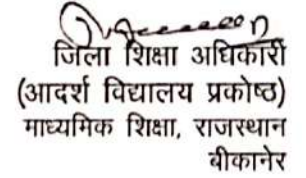 जिला शिक्षा अधिकारी
(आदर्श विद्यालय प्रकोष्ठ)
माध्यमिक शिक्षा, राजस्थान
बीकानेर